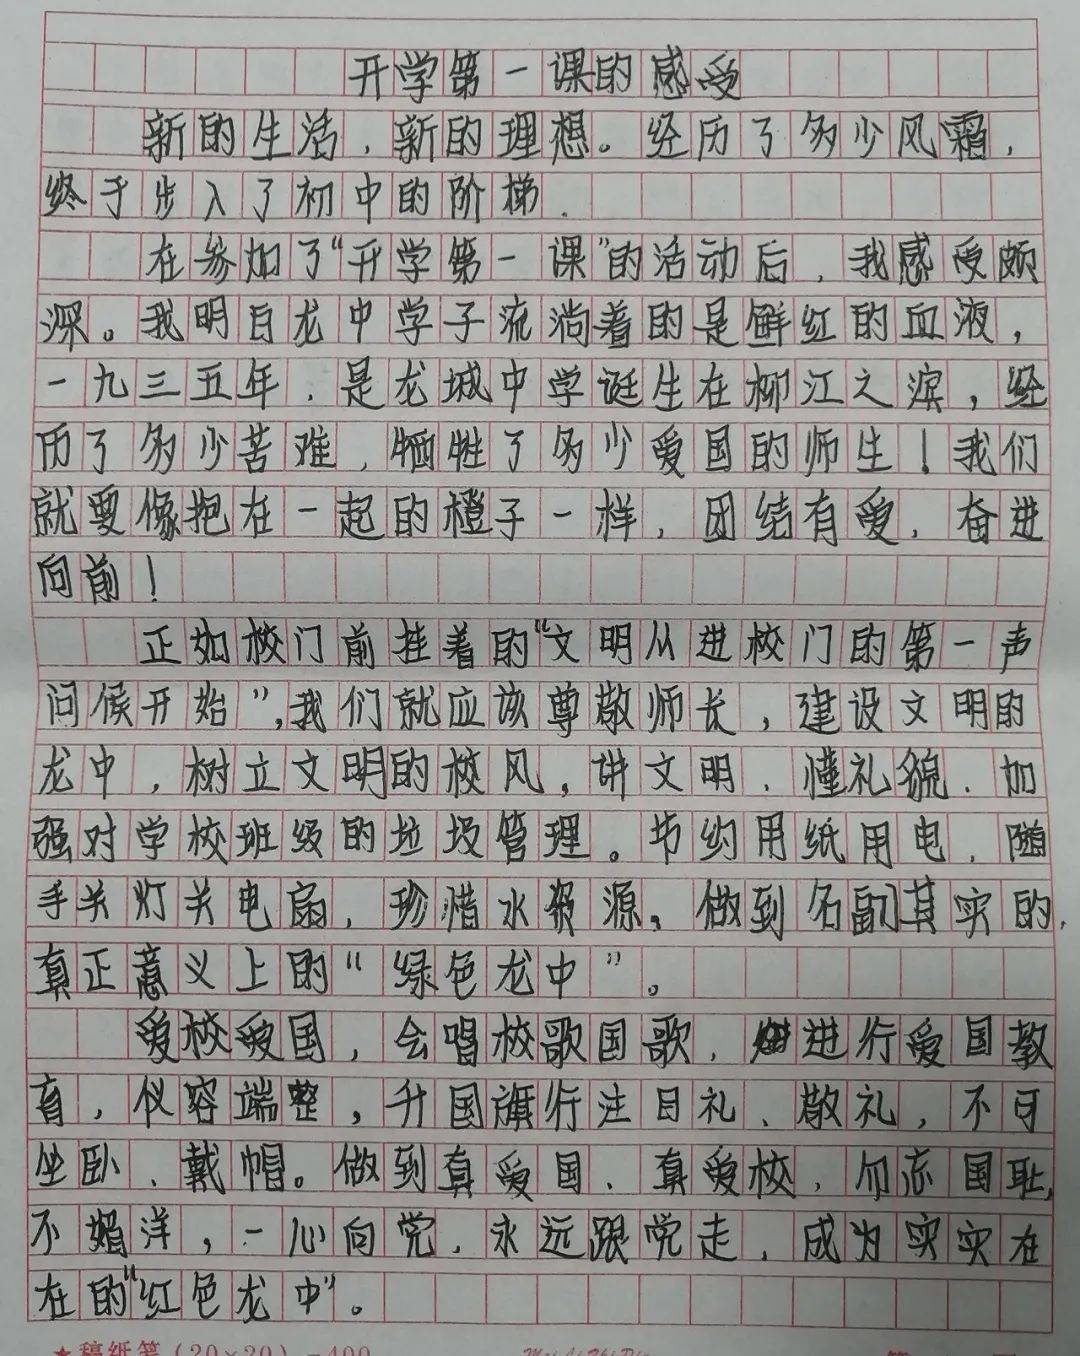 开学第一课的感受
新的生活，新的理想。经历了多少风霜，
终于步入了初中的阶梯.
在参加了“开学第一课”的活动后，我感受颇
深。我明白龙中学子流淌着的是鲜红的血液，
一九三五年，是龙城中学诞生在柳江之滨，经
历了多少苦难，牺牲了多少爱国的师生！我们
就要像抱在一起的橙子一样，团结有爱，奋进
向前！
正如校门前挂着的“文明从进校门的第一声
问候开始”，我们就应该尊敬师长，建设文明的
龙中，树立文明的校风，讲文明、懂礼貌、加
强对学校班级的垃圾管理。节约用纸用电，随
手关灯关电扇，珍惜水资源。做到名副其实的，
真正意义上的“绿色龙中”。
爱校爱国，会唱校歌国歌，进行爱国教
育，仪容端整，升国旗行注目礼、敬礼，不可
坐卧、戴帽。做到真爱国、真爱校，勿忘国耻，
不媚洋，一心向党，永远跟党走，成为实实在
在的“红色龙中”。
★稿纸笺（20×20）=400